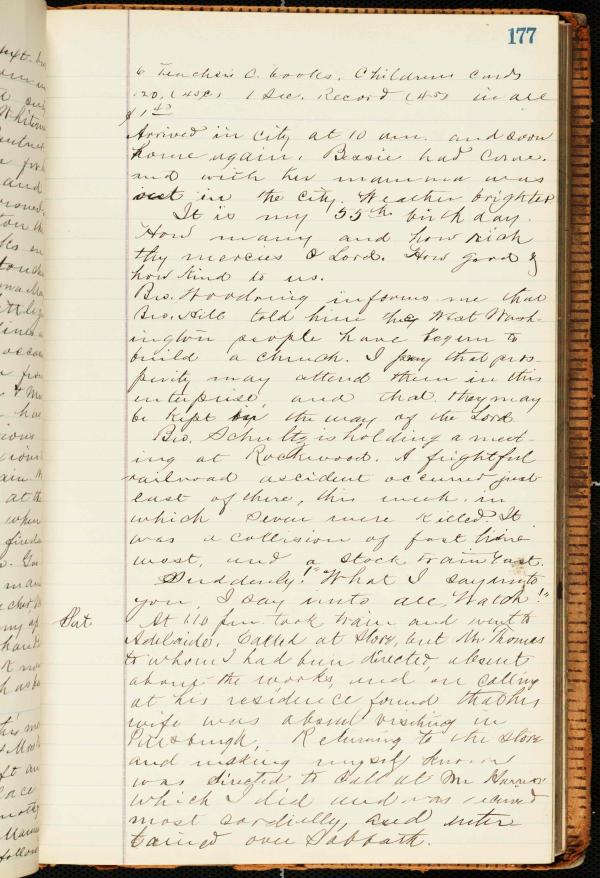 177
6 Teacher's C. books. Childrens Cards
120. (45c) 1 Sec. Record (45) in all
$1
Arrived in city at 10 am. and soon
home again. Bessie had come.
and with her mamma was
out in the city. Weather brighter.
It is my 55th birth day.
How many and how rich
thy mercies O Lord. How good &
how kind to us.
Bro. Woodring informs me that
Bro. Hill told him the West Wash-
ington people have begun to
build a church. I pray that pros-
perity may attend them in this
enterprise and that they may
be kept in the way of the Lord.
Bro. Schultz is holding a meet-
ing at Rockwood. A frightful
railroad accident occurred just
east of there, this week. in
which seven were killed. It
was a collision of fast line
west, and a stock train East.
Suddenly! "What I say unto
you, I say unto all, Watch!"
Sat At 110 pm. took train and went to
Adelaide. Called at Store, but Mr Thomas
to whom I had been directed, absent
about the works, and on calling
at his residence found that his
wife was absent visiting in
Pittsburgh. Returning to the store
and making myself known
was directed to call at Mr Harris
which I did and was received
most cordially, and enter
tained over Sabbath.